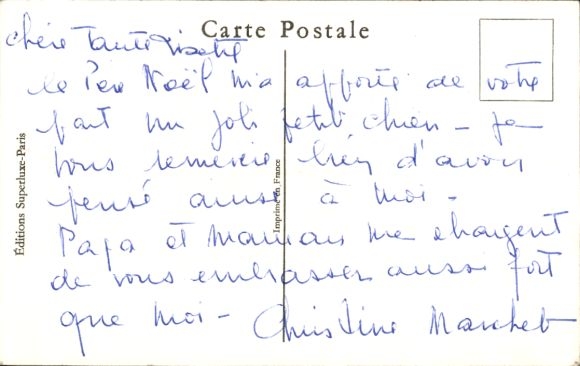 Carte Postale
Chère Tante Lisette
le Père Noël m'a apporté de votre
part un joli petit chien - Je
vous remercie bien d'avoir
pensé ainsi à moi -
Papa et Maman me chargent
de vous embrasser aussi fort
que moi - Christine Marchet
Éditions Superluxe-Paris
Imprimé en France